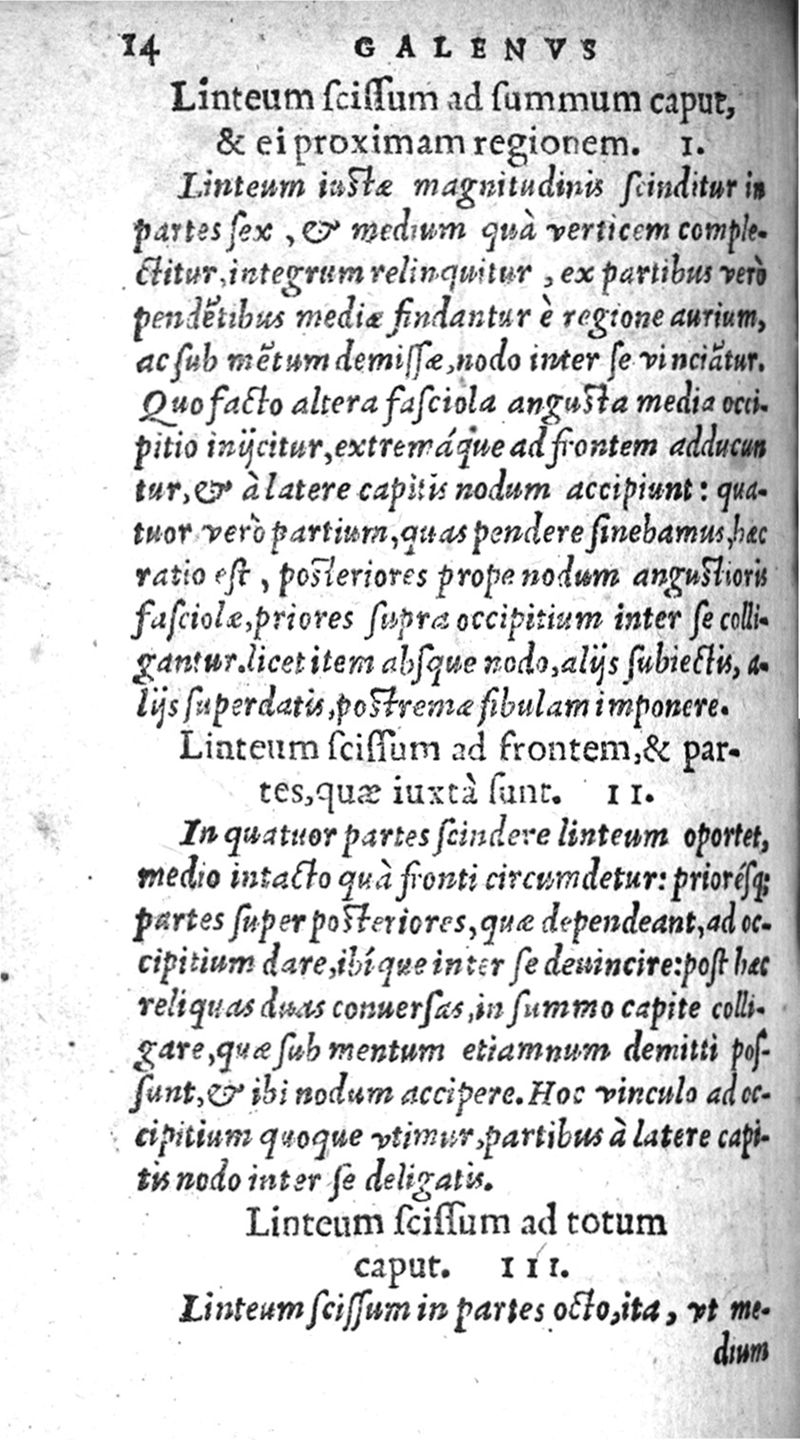 14 GALENVS
Linteum ſciſſum ad ſummum caput,
& ei proximam regionem. I.
Linteum iuſtæ magnitudinis ſcinditur in
partes ſex, & medium quà verticem comple-
ctitur, integrum relinquitur, ex partibus verò
pendẽtibus mediæ findantur è regione aurium,
ac ſub mẽtum demiſſæ, nodo inter ſe vinciãtur.
Quo facto altera faſciola anguſta media occi-
pitio inijcitur, extremáque ad frontem adducun
tur, & à latere capitis nodum accipiunt: qua-
tuor verò partium, quas pendere ſinebamus, hæc
ratio eſt, poſteriores prope nodum anguſtioris
faſciolæ, priores ſupra occipitium inter ſe colli-
gantur. licet item abſque nodo, alijs ſubiectis, a-
lijs ſuperdatis, poſtremæ fibulam imponere.
Linteum ſciſſum ad frontem, & par-
tes, quæ iuxtà ſunt. II.
In quatuor partes ſcindere linteum oportet,
medio intacto quà fronti circumdetur: prioréſq;
partes ſuper poſteriores, quæ dependeant, ad oc-
cipitium dare, ibíque inter ſe deuincire: poſt hæc
reliquas duas conuerſas, in ſummo capite colli-
gare, quæ ſub mentum etiamnum demitti poſ-
ſunt, & ibi nodum accipere. Hoc vinculo ad oc-
cipitium quoque vtimur, partibus à latere capi-
tis nodo inter ſe deligatis.
Linteum ſciſſum ad totum
caput. III.
Linteum ſciſſum in partes octo, ita, vt me-
dium